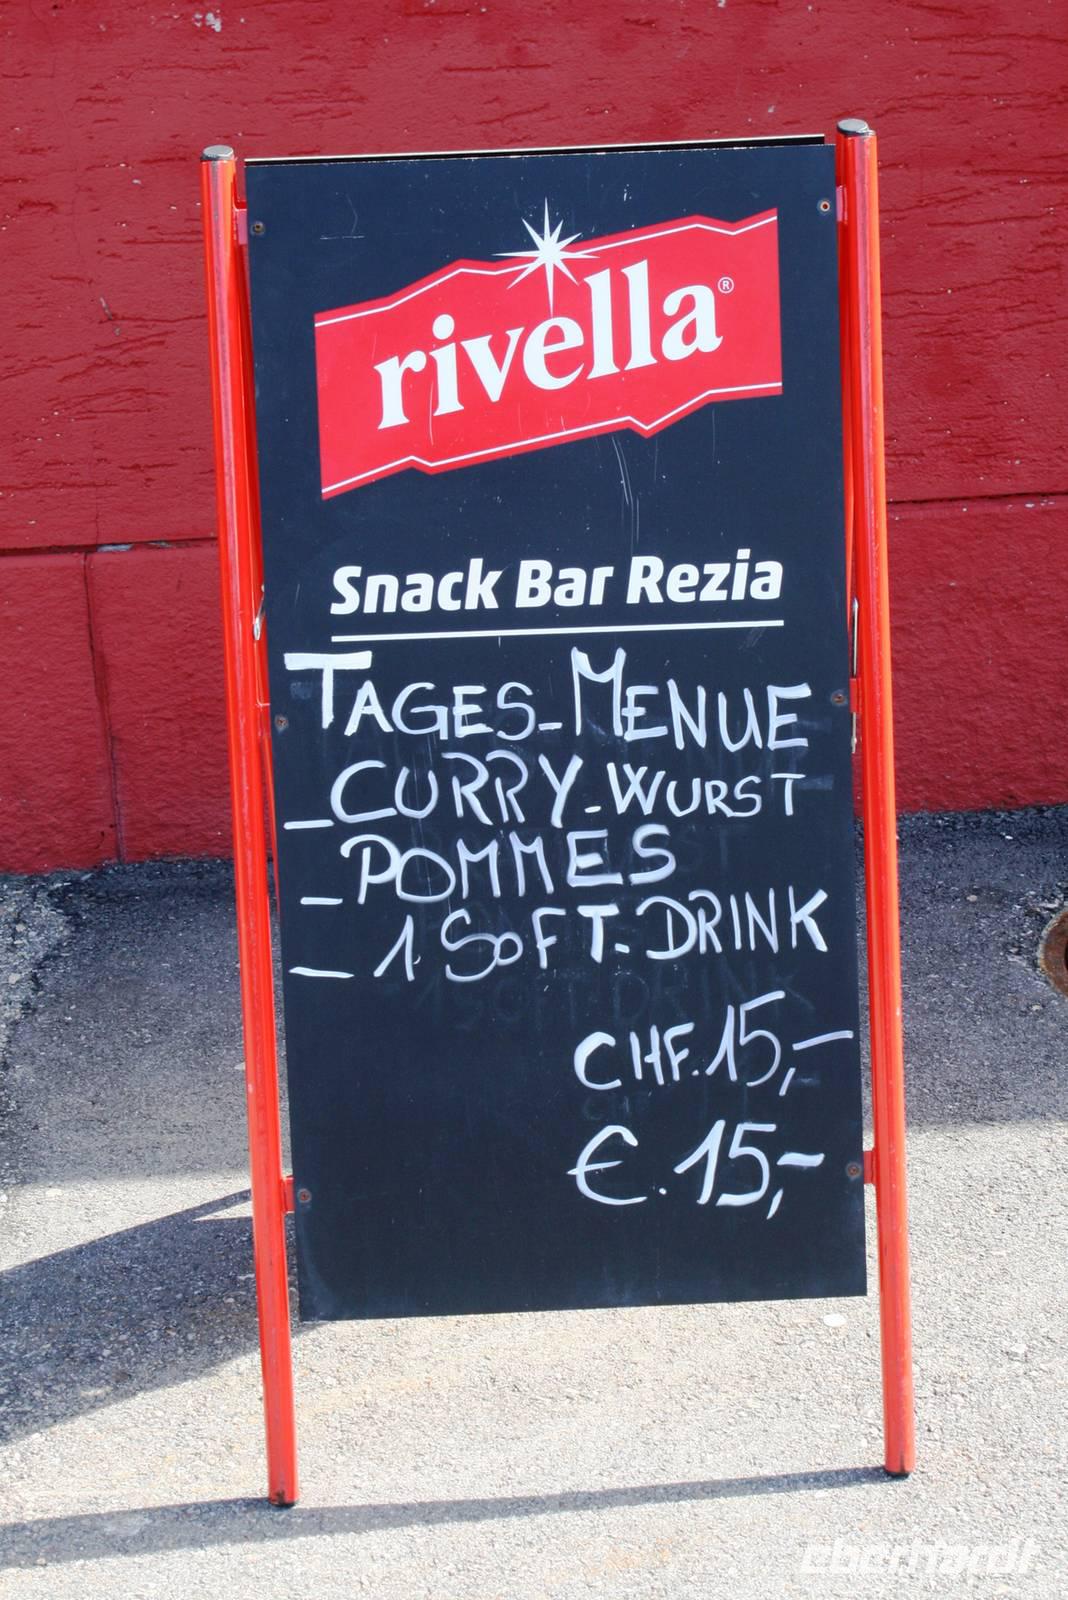 rivella®
Snack Bar Rezia
TAGES-MENUE
- CURRY-WURST
- POMMES
- 1 SOFT-DRINK
CHF. 15,-
€. 15,-
eberhardt